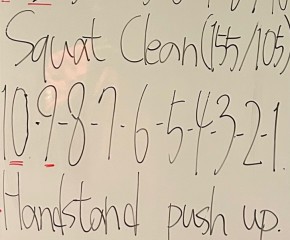 Squat Clean (155/105)
10-9-8-7-6-5-4-3-2-1
Handstand push up.